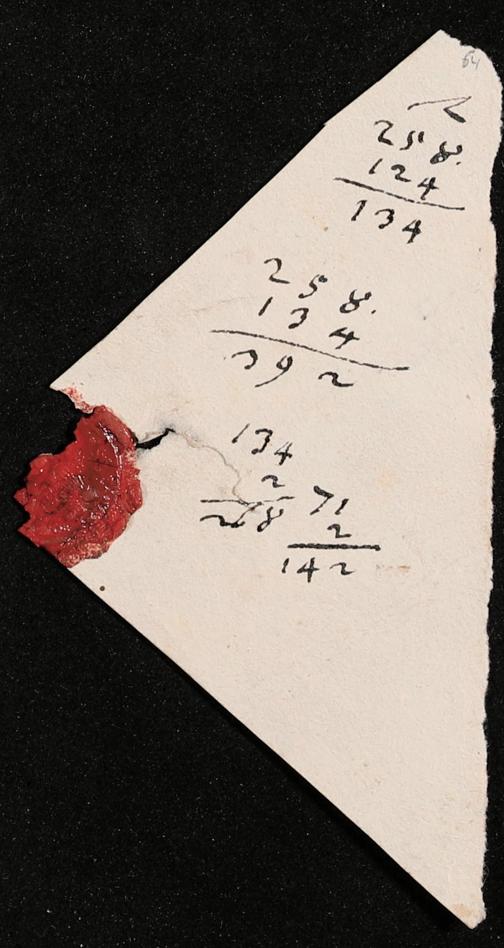 64
2
258.
124
134
258.
134
392
134
2
268
71
2
142